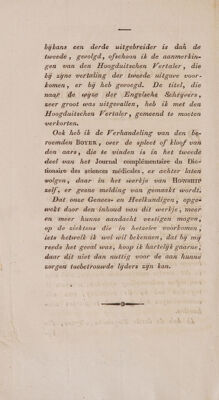 bijkans een derde uitgebreider is dan de
tweede, gevolgd, ofschoon ik de aanmerkin-
gen van den Hoogduitschen Vertaler, die
bij zijne vertaling der tweede uitgave voor-
komen, er bij heb gevoegd. De titel, die
naar de wijze der Engelsche Schrijvers,
zeer groot was uitgevallen, heb ik met den
Hoogduitschen Vertaler, gemeend te moeten
verkorten.
Ook heb ik de Verhandeling van den be-
roemden BOYER, over de spleet of kloof van
den aars, die te vinden is in het tweede
deel van het Journal complémentaire du Dic-
tionaire des sciences médicales, er achter laten
volgen, daar in het werkje van HOWSHIP
zelf, er geene melding van gemaakt wordt.
Dat onze Genees- en Heelkundigen, opge-
wekt door den inhoud van dit werkje, meer
en meer hunne aandacht vestigen mogen,
op de ziekten die in hetzelve voorkomen,
iets hetwelk ik wel wil bekennen, dat bij mij
reeds het geval was, hoop ik hartelijk gaarne,
daar dit niet dan nuttig voor de aan hunne
zorgen toebetrouwde lijders zijn kan.